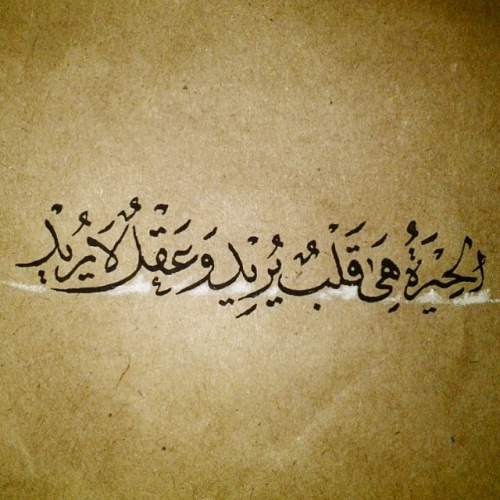 الحِيْرَةُ هِيَ قَلْبٌ يُرِيْدِ وَعَقْلٌ لَا يُرِيْدْ